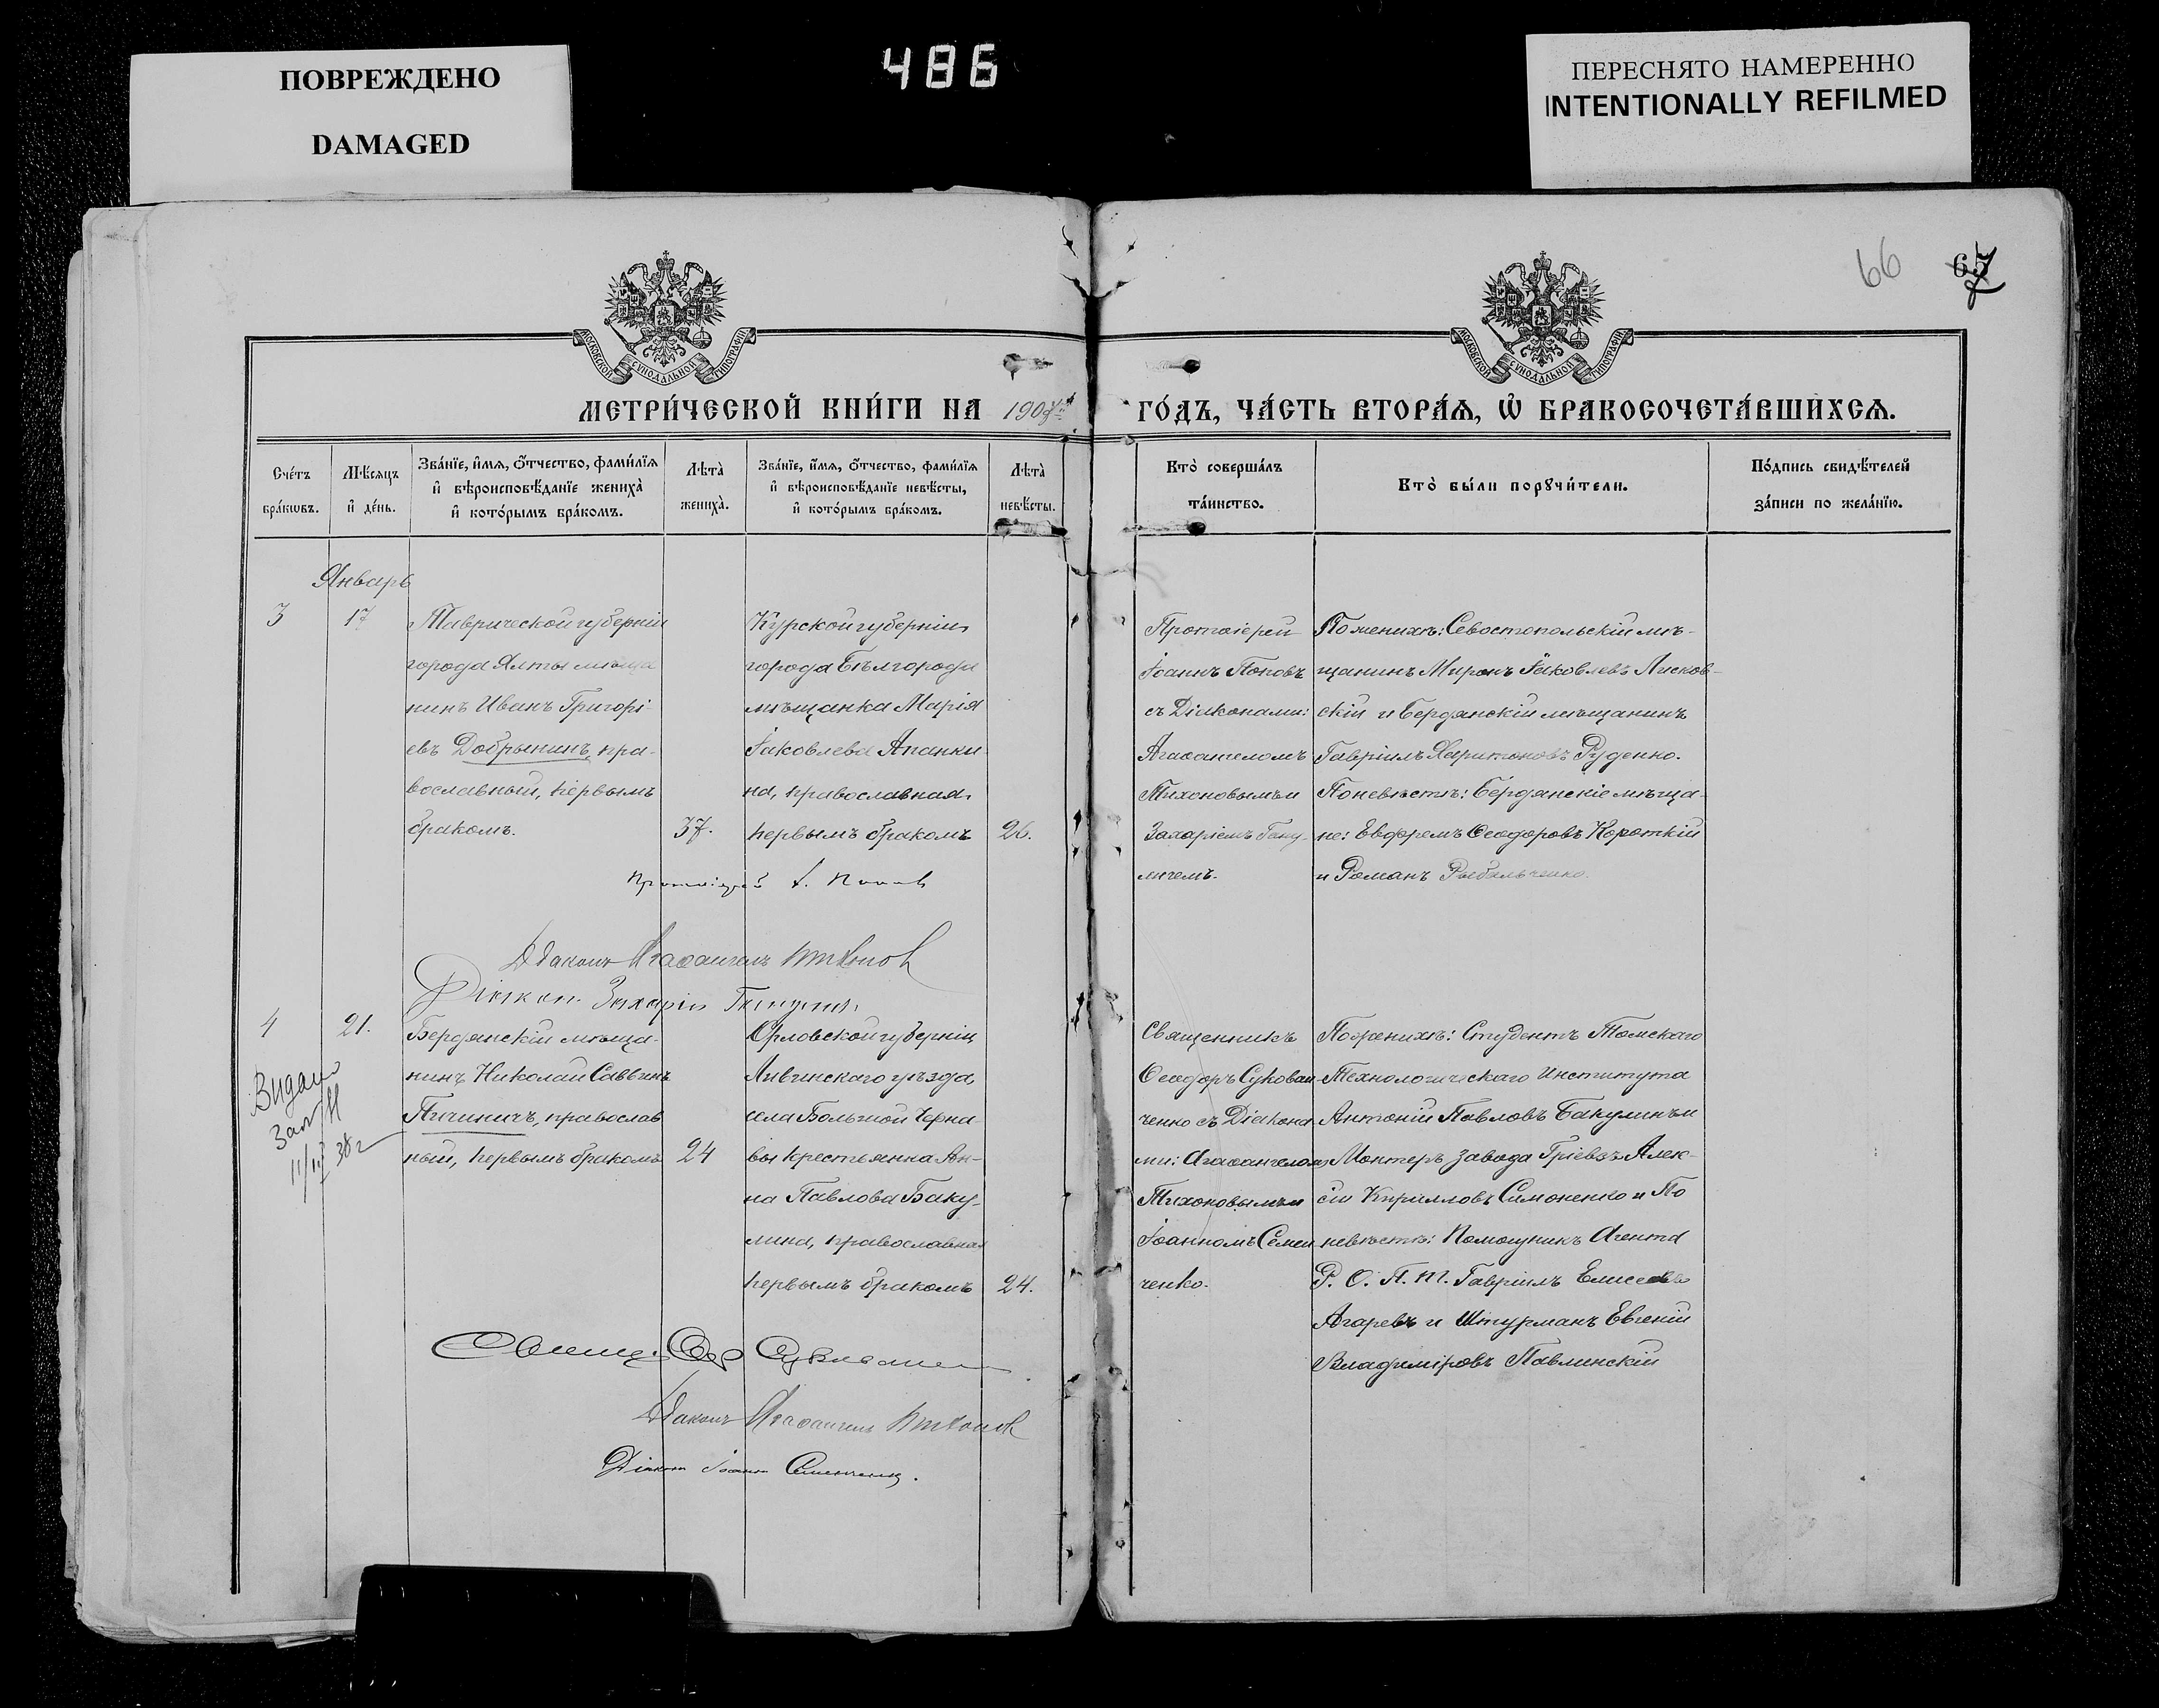 ПОВРЕЖДЕНО
DAMAGED
486
ПЕРЕСНЯТО НАМЕРЕННО
INTENTIONALLY REFILMED
66
МОСКОВСКОЙ СѴНОДАЛЬНОЙ ТИПОГРАФІИ
МОСКОВСКОЙ СѴНОДАЛЬНОЙ ТИПОГРАФІИ
МЕТРИ́ЧЕСКОЙ КНИ́ГИ НА
ГО́ДЪ, ЧА́СТЬ ВТОРА́Я, Ѡ҆ БРАКОСОЧЕТА́ВШИХСЯ.
Сче́тъ
бра́кѡвъ.
Мѣ́сяцъ
и҆ де́нь.
Зва́нїе, и҆́мѧ, ѻ҆́тчество, фами́лїѧ
и҆ вѣроисповѣ́данїе жениха̀
и҆ кото́рымъ бра́комъ.
Лѣта̀
жениха̀.
Зва́нїе, и҆́мѧ, ѻ҆́тчество, фами́лїѧ
и҆ вѣроисповѣ́данїе невѣ́сты,
и҆ кото́рымъ бра́комъ.
Лѣта̀
невѣ́сты.
Кто̀ соверша́лъ
та́инство.
Кто̀ бы́ли порꙋчи́тели.
По́дпись свидѣ́телей
за́писи по жела́нїю.
Январь
3
17
Таврической губерніи
города Ялты мѣща
нинъ Иванъ Григорі-
евъ Добрынинъ, пра-
вославный, первымъ
бракомъ.
37.
Курской губерніи,
города Бѣлгорода
мѣщанка Марія
Іаковлева Апанки-
на, православная,
первымъ бракомъ
26.
Протоіерей
Іоаннъ Поповъ
съ Діаконами:
Агаѳангеломъ
Тихоновымъ и
Захаріемъ Гану-
личемъ.
По женихѣ: Севостопольскій мѣ-
щанинъ Миронъ Іаковлевъ Лисков-
скій и Бердянскій мѣщанинъ
Гавріилъ Харитоновъ Руденко.
По невѣстѣ: Бердянскіе мѣща-
не: Евфремъ Ѳеодоровъ Короткій
и Романъ Рыбальченко.
Протоіерей І. Поповъ
Діаконъ Агаѳангелъ Тихонов
Діакон Захарія
4
21.
Бердянскій мѣща-
нинъ Николай Саввинъ
Пичиничъ, православ
ный, первымъ бракомъ
24
Орловской губерніи,
Ливенскаго уѣзда,
села Большой Черна-
вы крестьянка Ан-
на Павлова Баку-
лина, православная
первымъ бракомъ
24.
Священникъ
Ѳеодоръ Сукован-
ченко съ Діакона
ми: Агаѳангеломъ
Тихоновымъ и
Іоанномъ Семен
ченко.
По женихѣ: Студентъ Томскаго
Технологическаго Института
Антоній Павловъ Бакулинъ и
Монтеръ завода Гріевзъ Алек-
сій Кирилловъ Симоненко и По
невѣстѣ: Помощникъ Агента
Р. О. П. Т. Гавріилъ Елисеевъ
Агаревъ и Штурманъ Евгеній
Владиміровъ Павлинскій
Видано
11/III 38 г
Свящ. Ѳеод.
Діаконъ Агаѳангелъ Тихонов
Діакон Іоанн Семенченко.